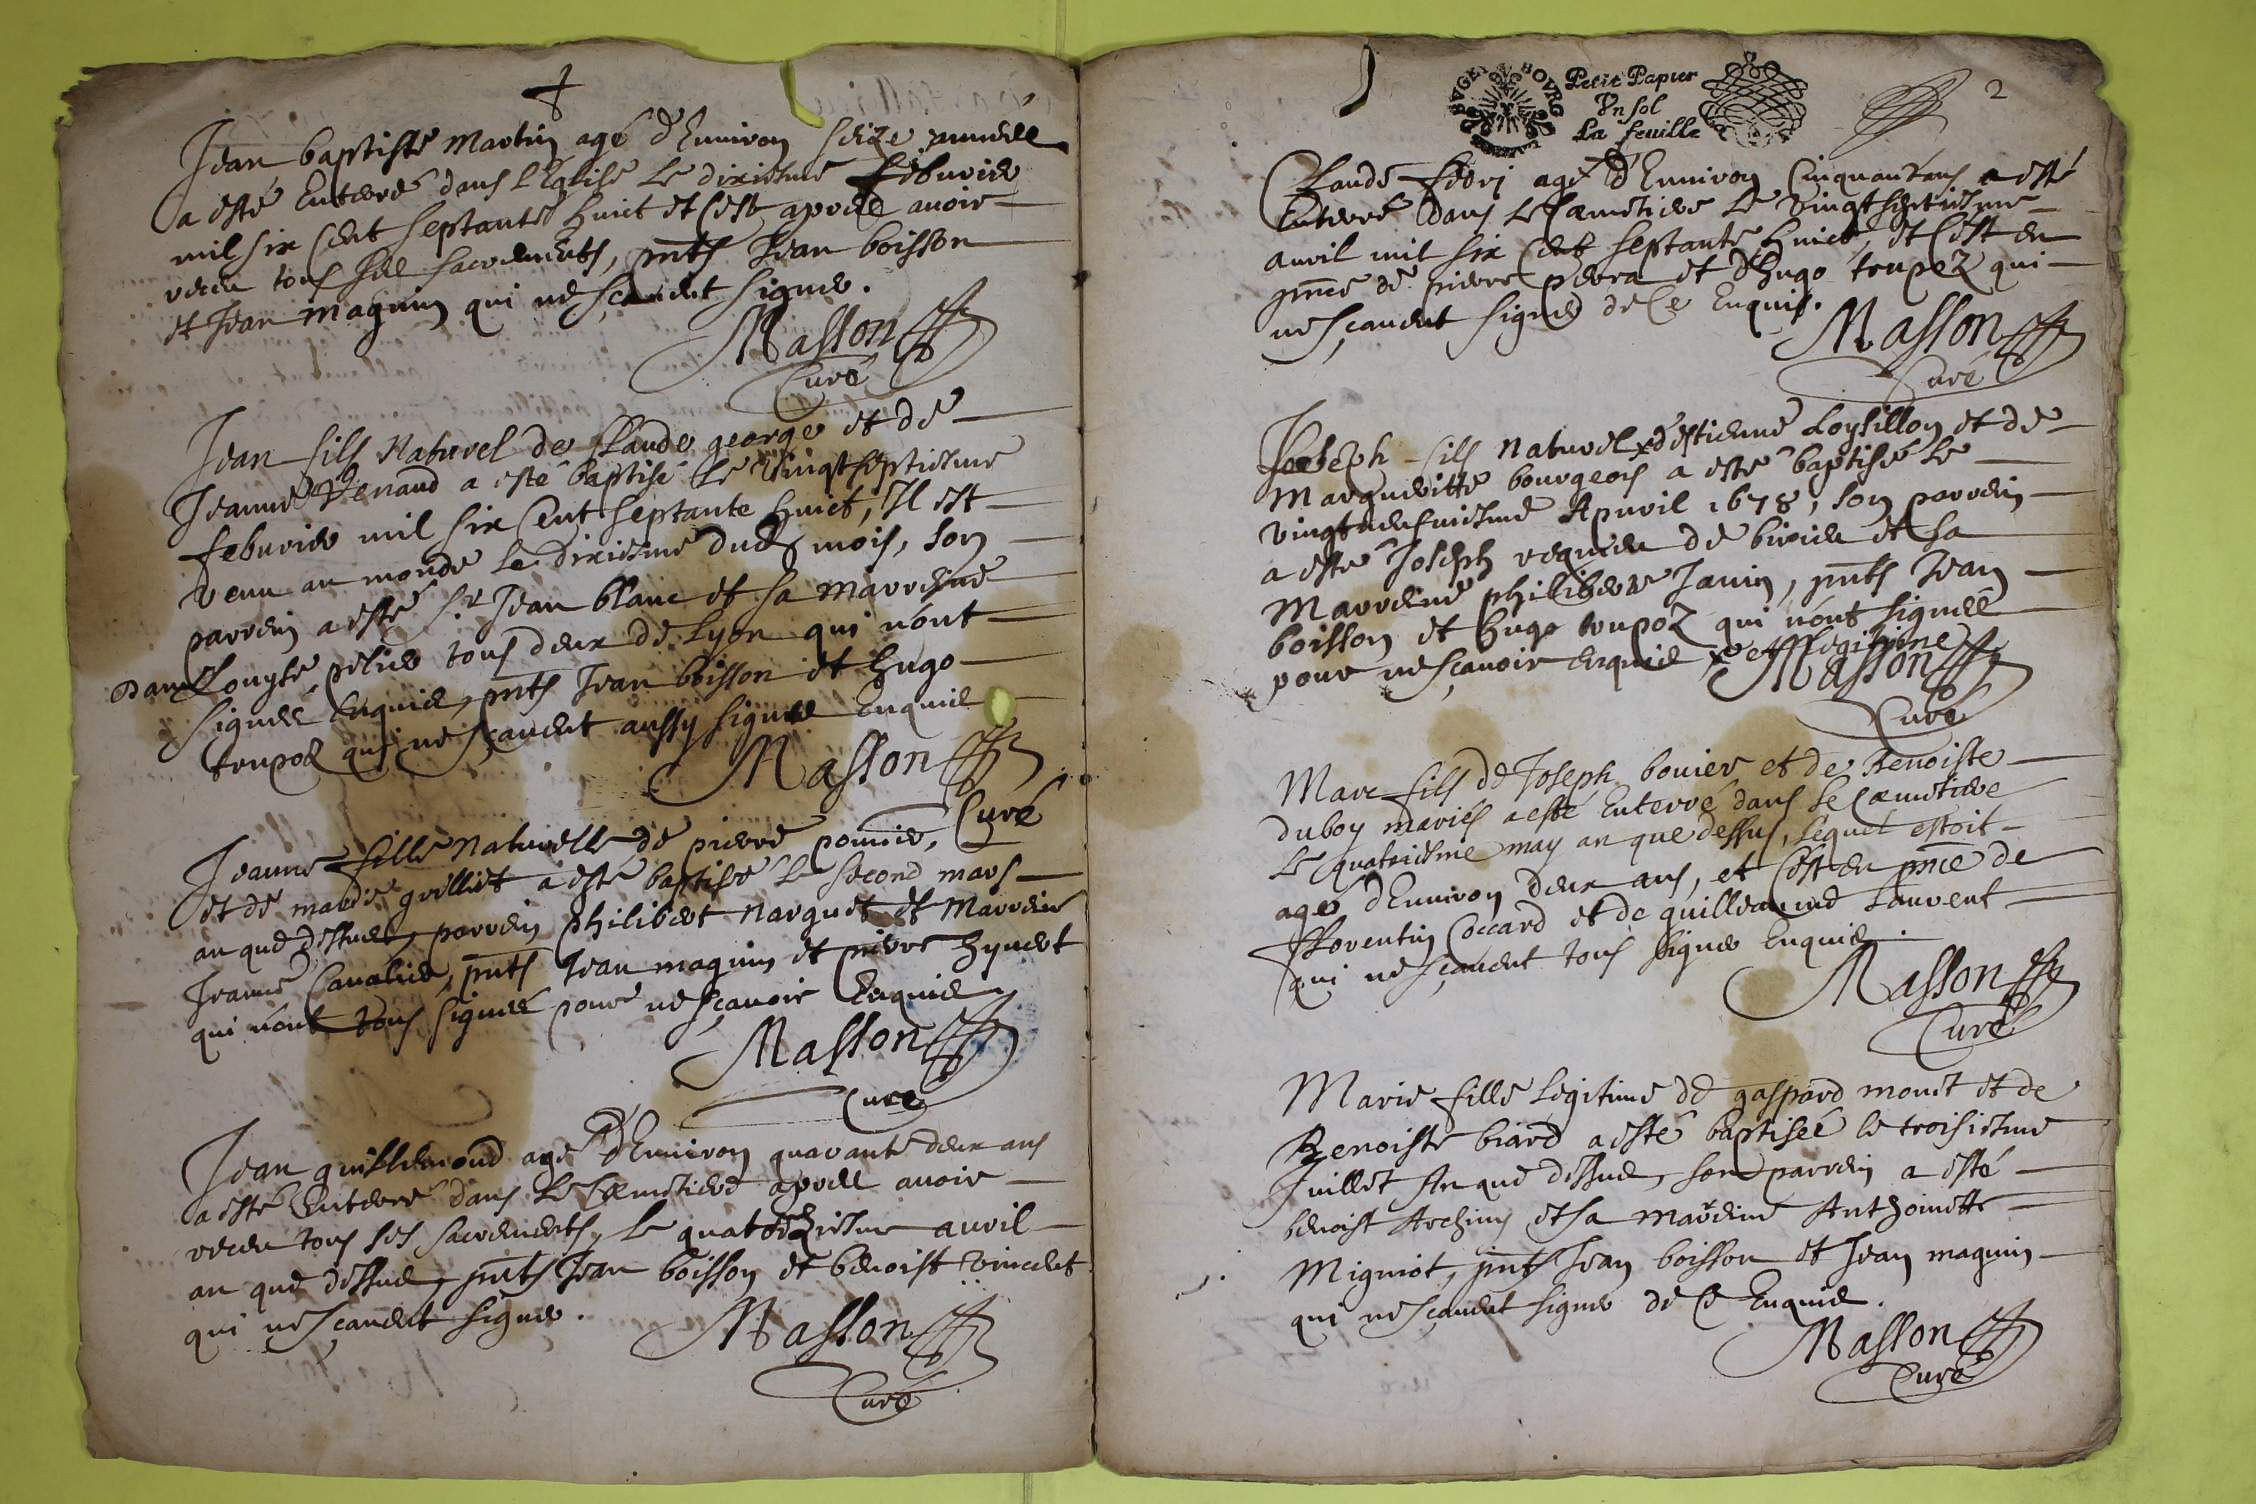 Jean baptiste Martin agé d'Environ seize années
a esté Enterré dans l'Eglise Le dixiesme febvrier
mil six Cent septante huict et C'est apres avoir
receu tous ses sacrements, pnts Jean boisson
et Jean maguin qui ne sçavent signer.
Masson
Curé
Jean fils Naturel de Claude george et de
Jeanne Venand a esté baptisé Le vingtseptiesme
febvrier mil six Cent septante huict, Il est
venu au monde Le dixiesme dud mois, son
parrein a esté Sr Jean blanc et sa marreine
tous deux de Lyon qui n'ont
signés Enquis, pnts Jean boisson et hugo
trupoz qui ne sçavent aussy signer Enquis
Masson
Curé
Jeanne fille Naturelle de pierre pomier,
et de marie grilliet a esté baptisée Le second mars
an que dessus, parrein philibert narguet et Marreine
Jeanne Cavalier, pnts Jean maguin et pierre
qui n'ont tous signés pour ne sçavoir Enquis
Masson
Curé
Jean guillemond agé d'Environ quarante deux ans
a esté Enterré dans Le Cæmetiere apres avoir
receu tous ses sacrements, Le quatorziesme avril
an que dessus, pnts Jean boisson et benoist vincent
qui ne sçavent signer.
Masson
Curé
BVGEY BOVRG
Petit Papier
Vn sol
La feuille
2
Claude agé d'Environ Cinquant'ans a esté
Enterré dans Le Cæmetiere Le vingtseptiesme
avril mil six Cent septante huict, et C'est en
pnce de pierre perra et d'hugo trupoz qui
ne sçavent signer de Ce Enquis.
Masson
Curé
Joseph fils Naturel x d'estienne Loysillon et de
Margueritte bourgeois a esté baptisé Le
vingtneufviesme Apvril 1678, son parrein
a esté Joseph de et sa
Marreine philiberte Janin, pnts Jean
boisson et hugo trupoz qui n'ont signés
pour ne sçavoir Enquis x et Legitime
Masson
Curé
Marc fils de Joseph bouier et de Benoiste
duboy mariés a esté Enterré dans Le Cæmetiere
Le quatriesme may an que dessus, Lequel estoit
agé d'Environ deux ans, et C'est en pnce de
fflorentin Coccard et de guillaume Laurent
qui ne sçavent tous signer Enquis.
Masson
Curé
Marie fille Legitime de gaspard monet et de
Benoiste biard a esté baptisée le troisiesme
Juillet An que dessus, son parrein a esté
benoist et sa marreine Anthoinette
Migniot, pnts Jean boisson et Jean maguin
qui ne sçavent signer de Ce Enquis.
Masson
Curé